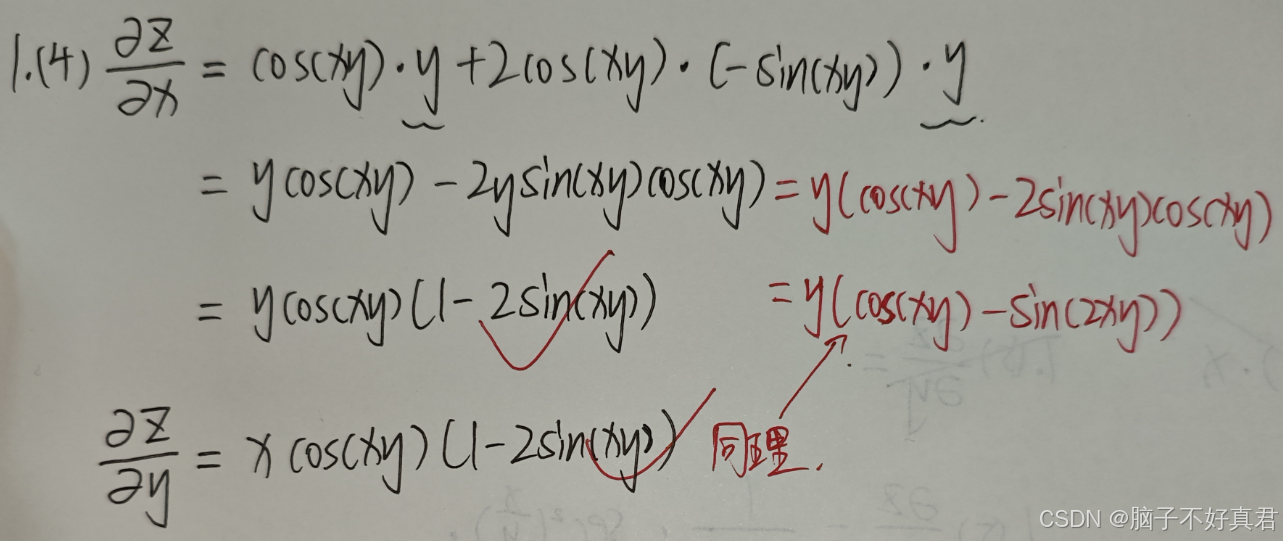 1.(4) ∂z/∂x = cos(xy)·y + 2cos(xy)·(-sin(xy))·y
= ycos(xy) - 2ysin(xy)cos(xy) = y(cos(xy) - 2sin(xy)cos(xy))
= ycos(xy)(1 - 2sin(xy)) = y(cos(xy) - sin(2xy))
∂z/∂y = x cos(xy)(1 - 2sin(xy)) 同理.
CSDN @脑子不好真君